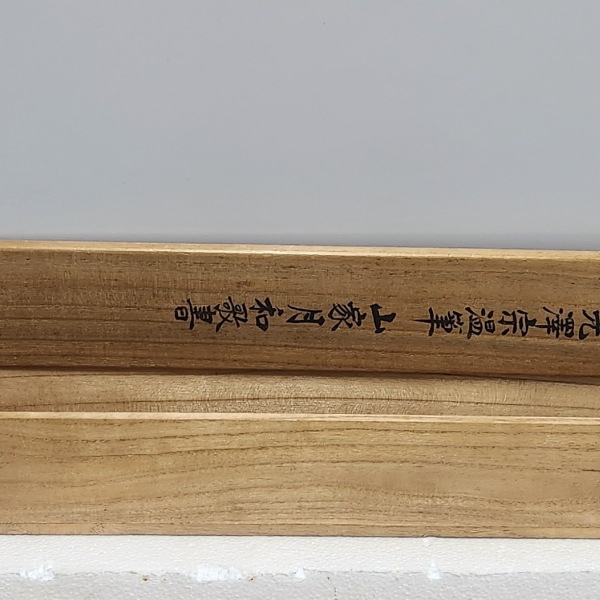 澤宗温筆 山家月和歌書